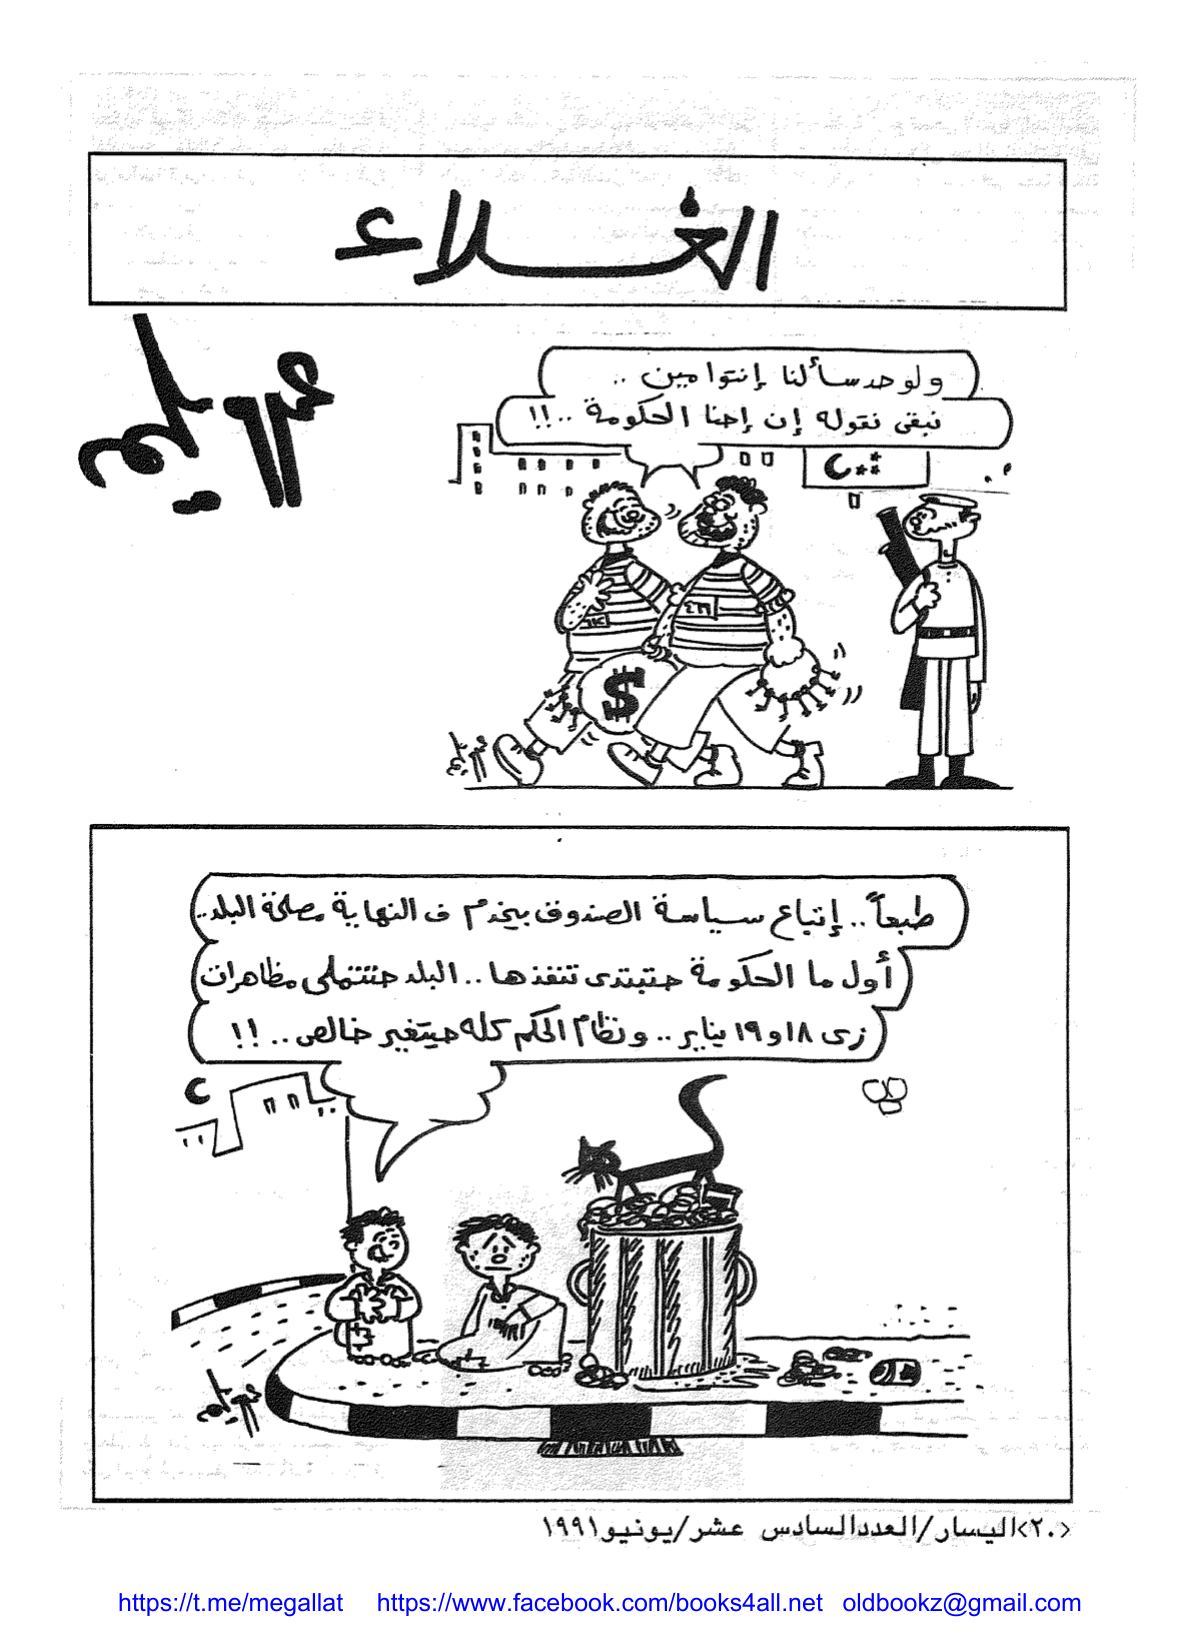 الغلاء
ولو حد سألنا إنتوا مين ..
نبقى نقوله إن إحنا الحكومة ..!!
$
طبعاً .. إتباع سياسة الصندوق بيخدم ف النهاية مصلحة البلد..
أول ما الحكومة حتبتدى تنفذها .. البلد حتتملى مظاهرات
زى ١٨ و١٩ يناير .. ونظام الحكم كله حيتغير خالص .. !!
<٢٠>اليسار/العدد السادس عشر/يونيو١٩٩١
https://t.me/megallat https://www.facebook.com/books4all.net oldbookz@gmail.com